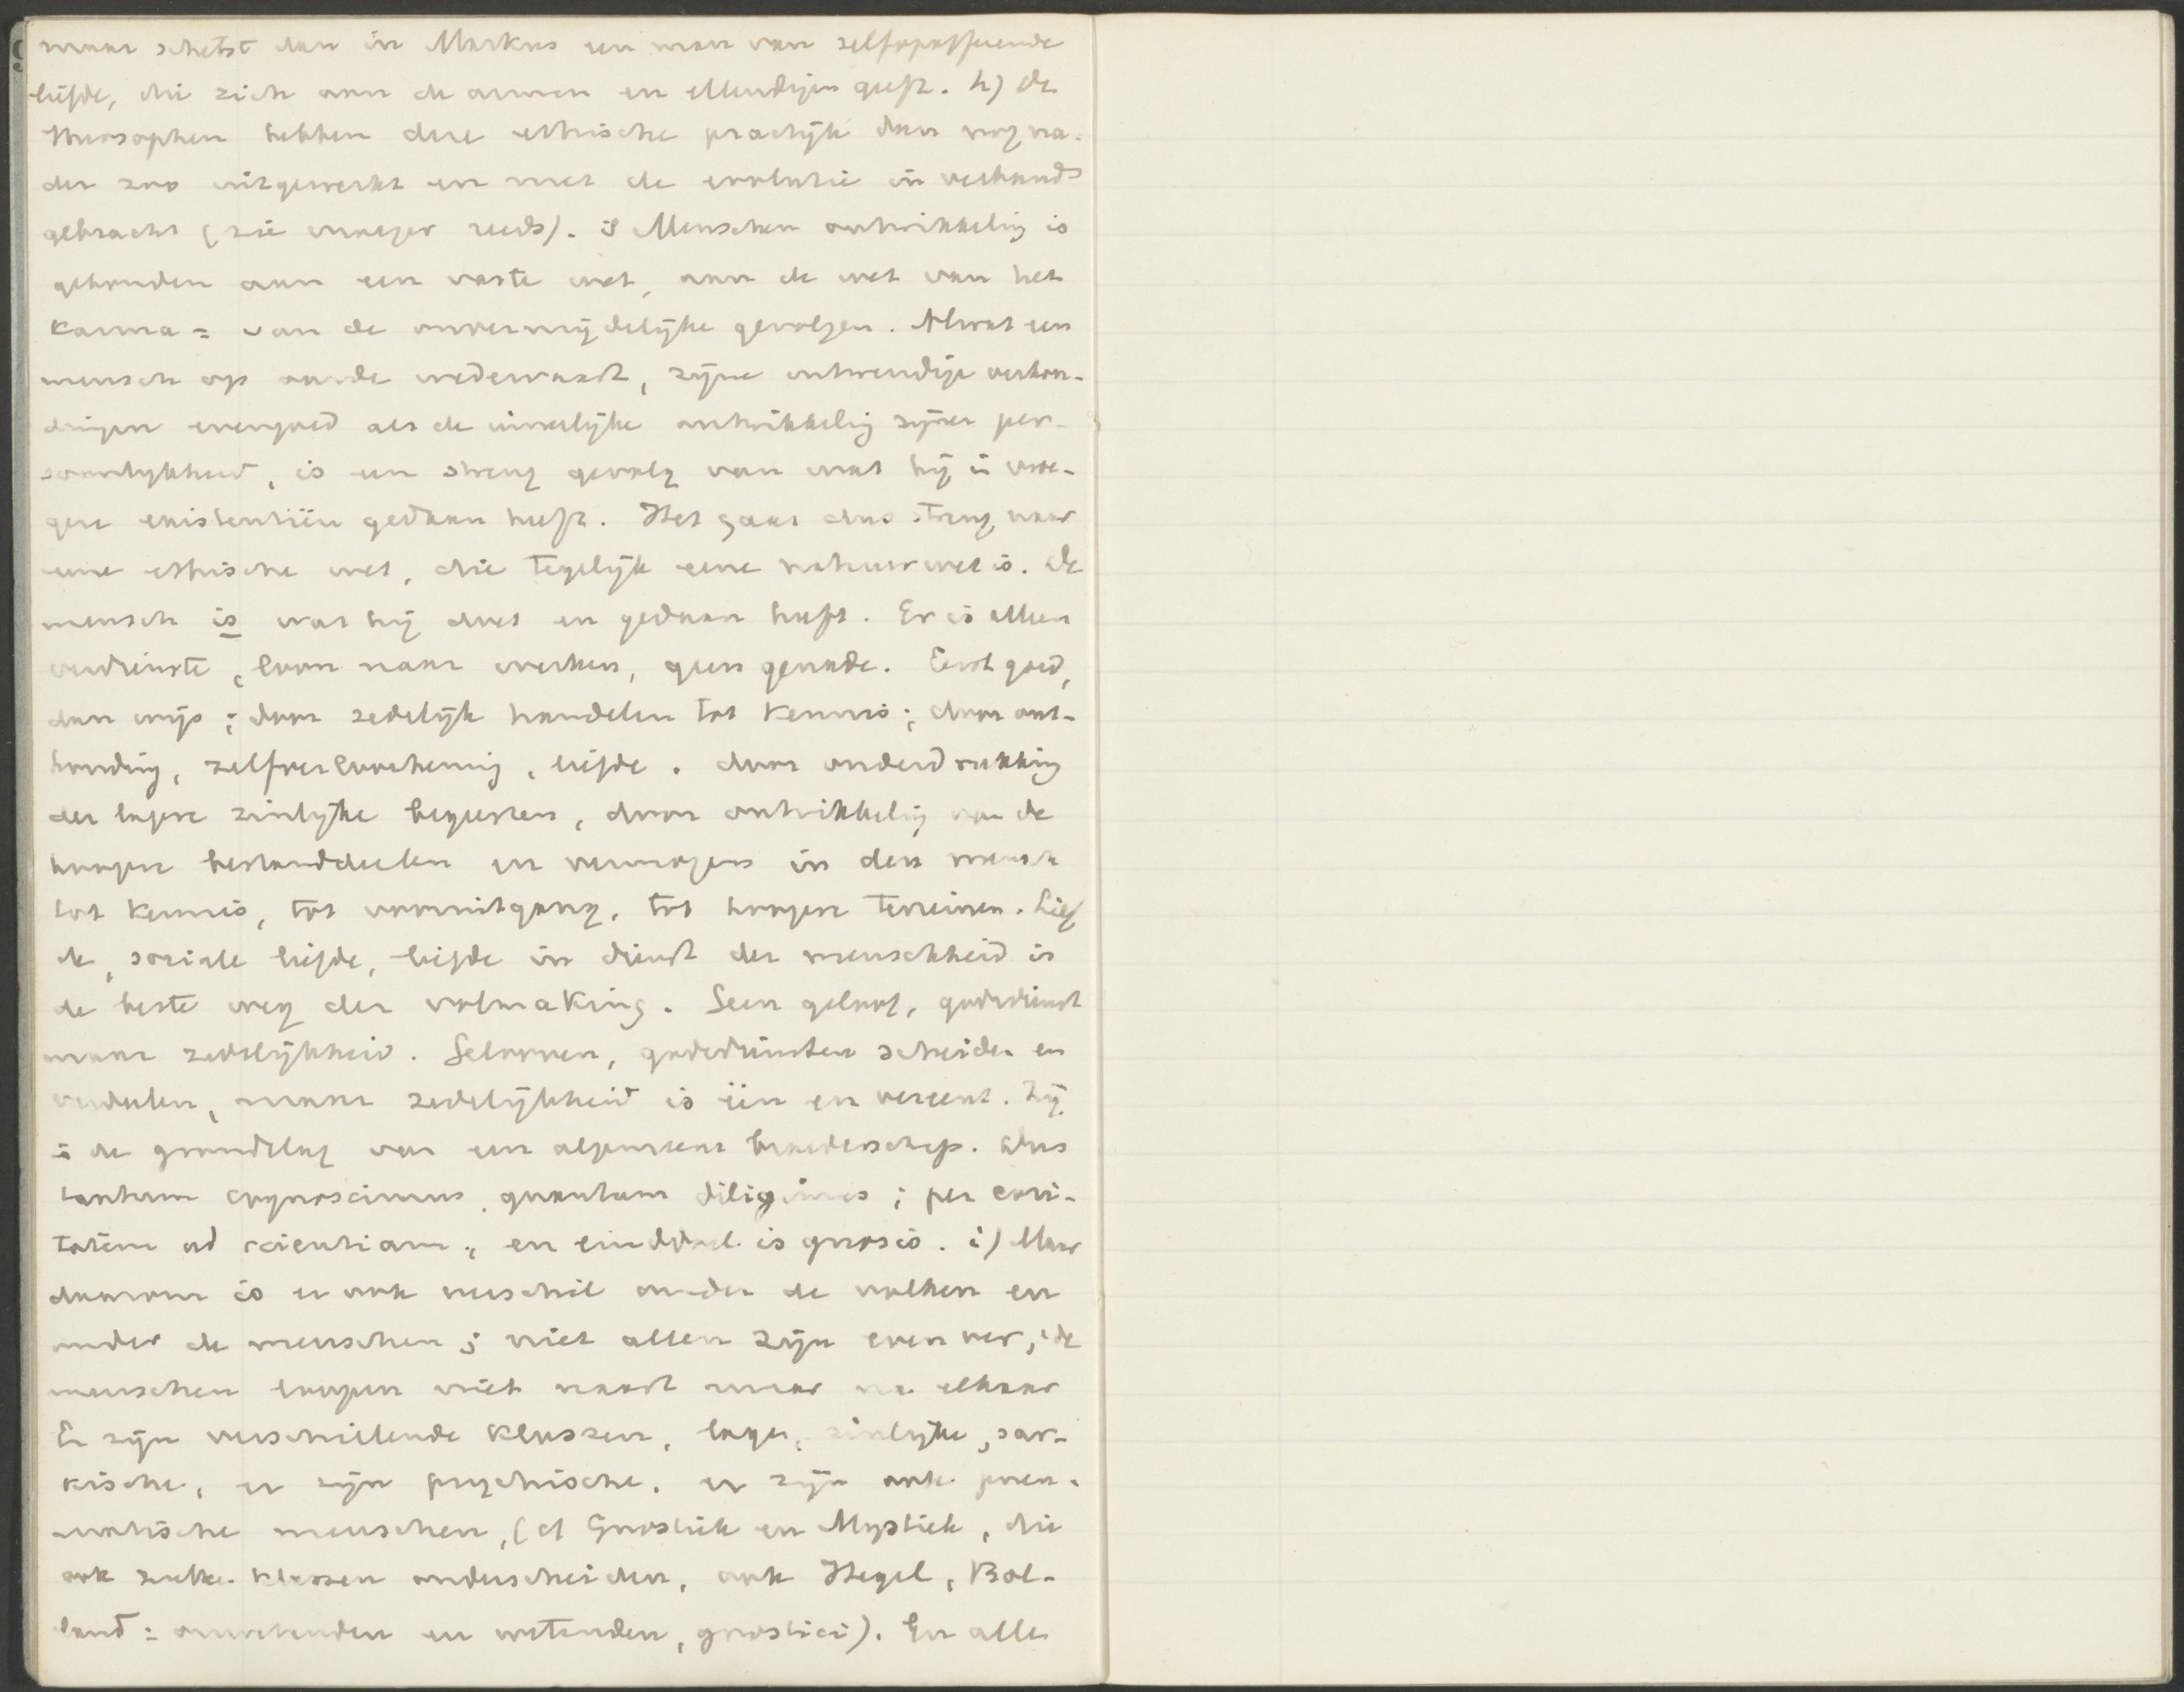 maar schetst dan in Markus een man van zelfopofferende
liefde, die zich aan de armen en ellendigen geeft. h) de
Theosophen hebben deze ethische practijk dan nog na-
der zoo uitgewerkt en met de evolutie in verband
gebracht (zie vroeger reeds). 's Menschen ontwikkeling is
gebonden aan een vaste wet, aan de wet van het
Karma = van de onvermijdelijke gevolgen. Al wat een
mensch op aarde wedervaart, zijne uitwendige verhou-
dingen evengoed als de innerlijke ontwikkeling zijner per-
soonlijkheid, is een streng gevolg van wat hij in vroe-
gere existentiën gedaan heeft. Het gaat dus streng naar
eene ethische wet, die tegelijk eene natuurwet is. De
mensch is wat hij doet en gedaan heeft. Er is alleen
verdienste, loon naar werken, geen genade. Eerst goed,
dan wijs; door zedelijk handelen tot Kennis; door ont-
houding, zelfverloochening, liefde. door onderdrukking
der lagere zinlijke begeerten, door ontwikkeling van de
hoogere bestanddeelen en vermogens in den mensch
tot Kennis, tot vooruitgang, tot hoogere terreinen. Lief
de, sociale liefde, liefde in dienst der menschheid is
de beste weg der volmaking. Geen geloof, godsdienst
maar zedelijkheid. Gelooven, godsdiensten scheiden en
verdeelen, maar zedelijkheid is één en vereent. Zij
is de grondslag van een algemeene broederschap. Dus
tantum cognoscimus, quantum diligimus; per cari-
tatem ad scientiam; en einddoel is gnosis. i) Maar
daarom is er ook verschil onder de volken en
onder de menschen; niet allen zijn even ver; de
menschen loopen niet naast maar na elkaar
Er zijn verschillende Klassen, lage, zinlijke, sar-
kische, er zijn psychische, er zijn ook pneu-
matische menschen, (cf Gnostiek en Mystiek, die
ook zulke klassen onderscheiden, ook Hegel, Bol-
land: onwetenden en wetenden, gnostici). En alle